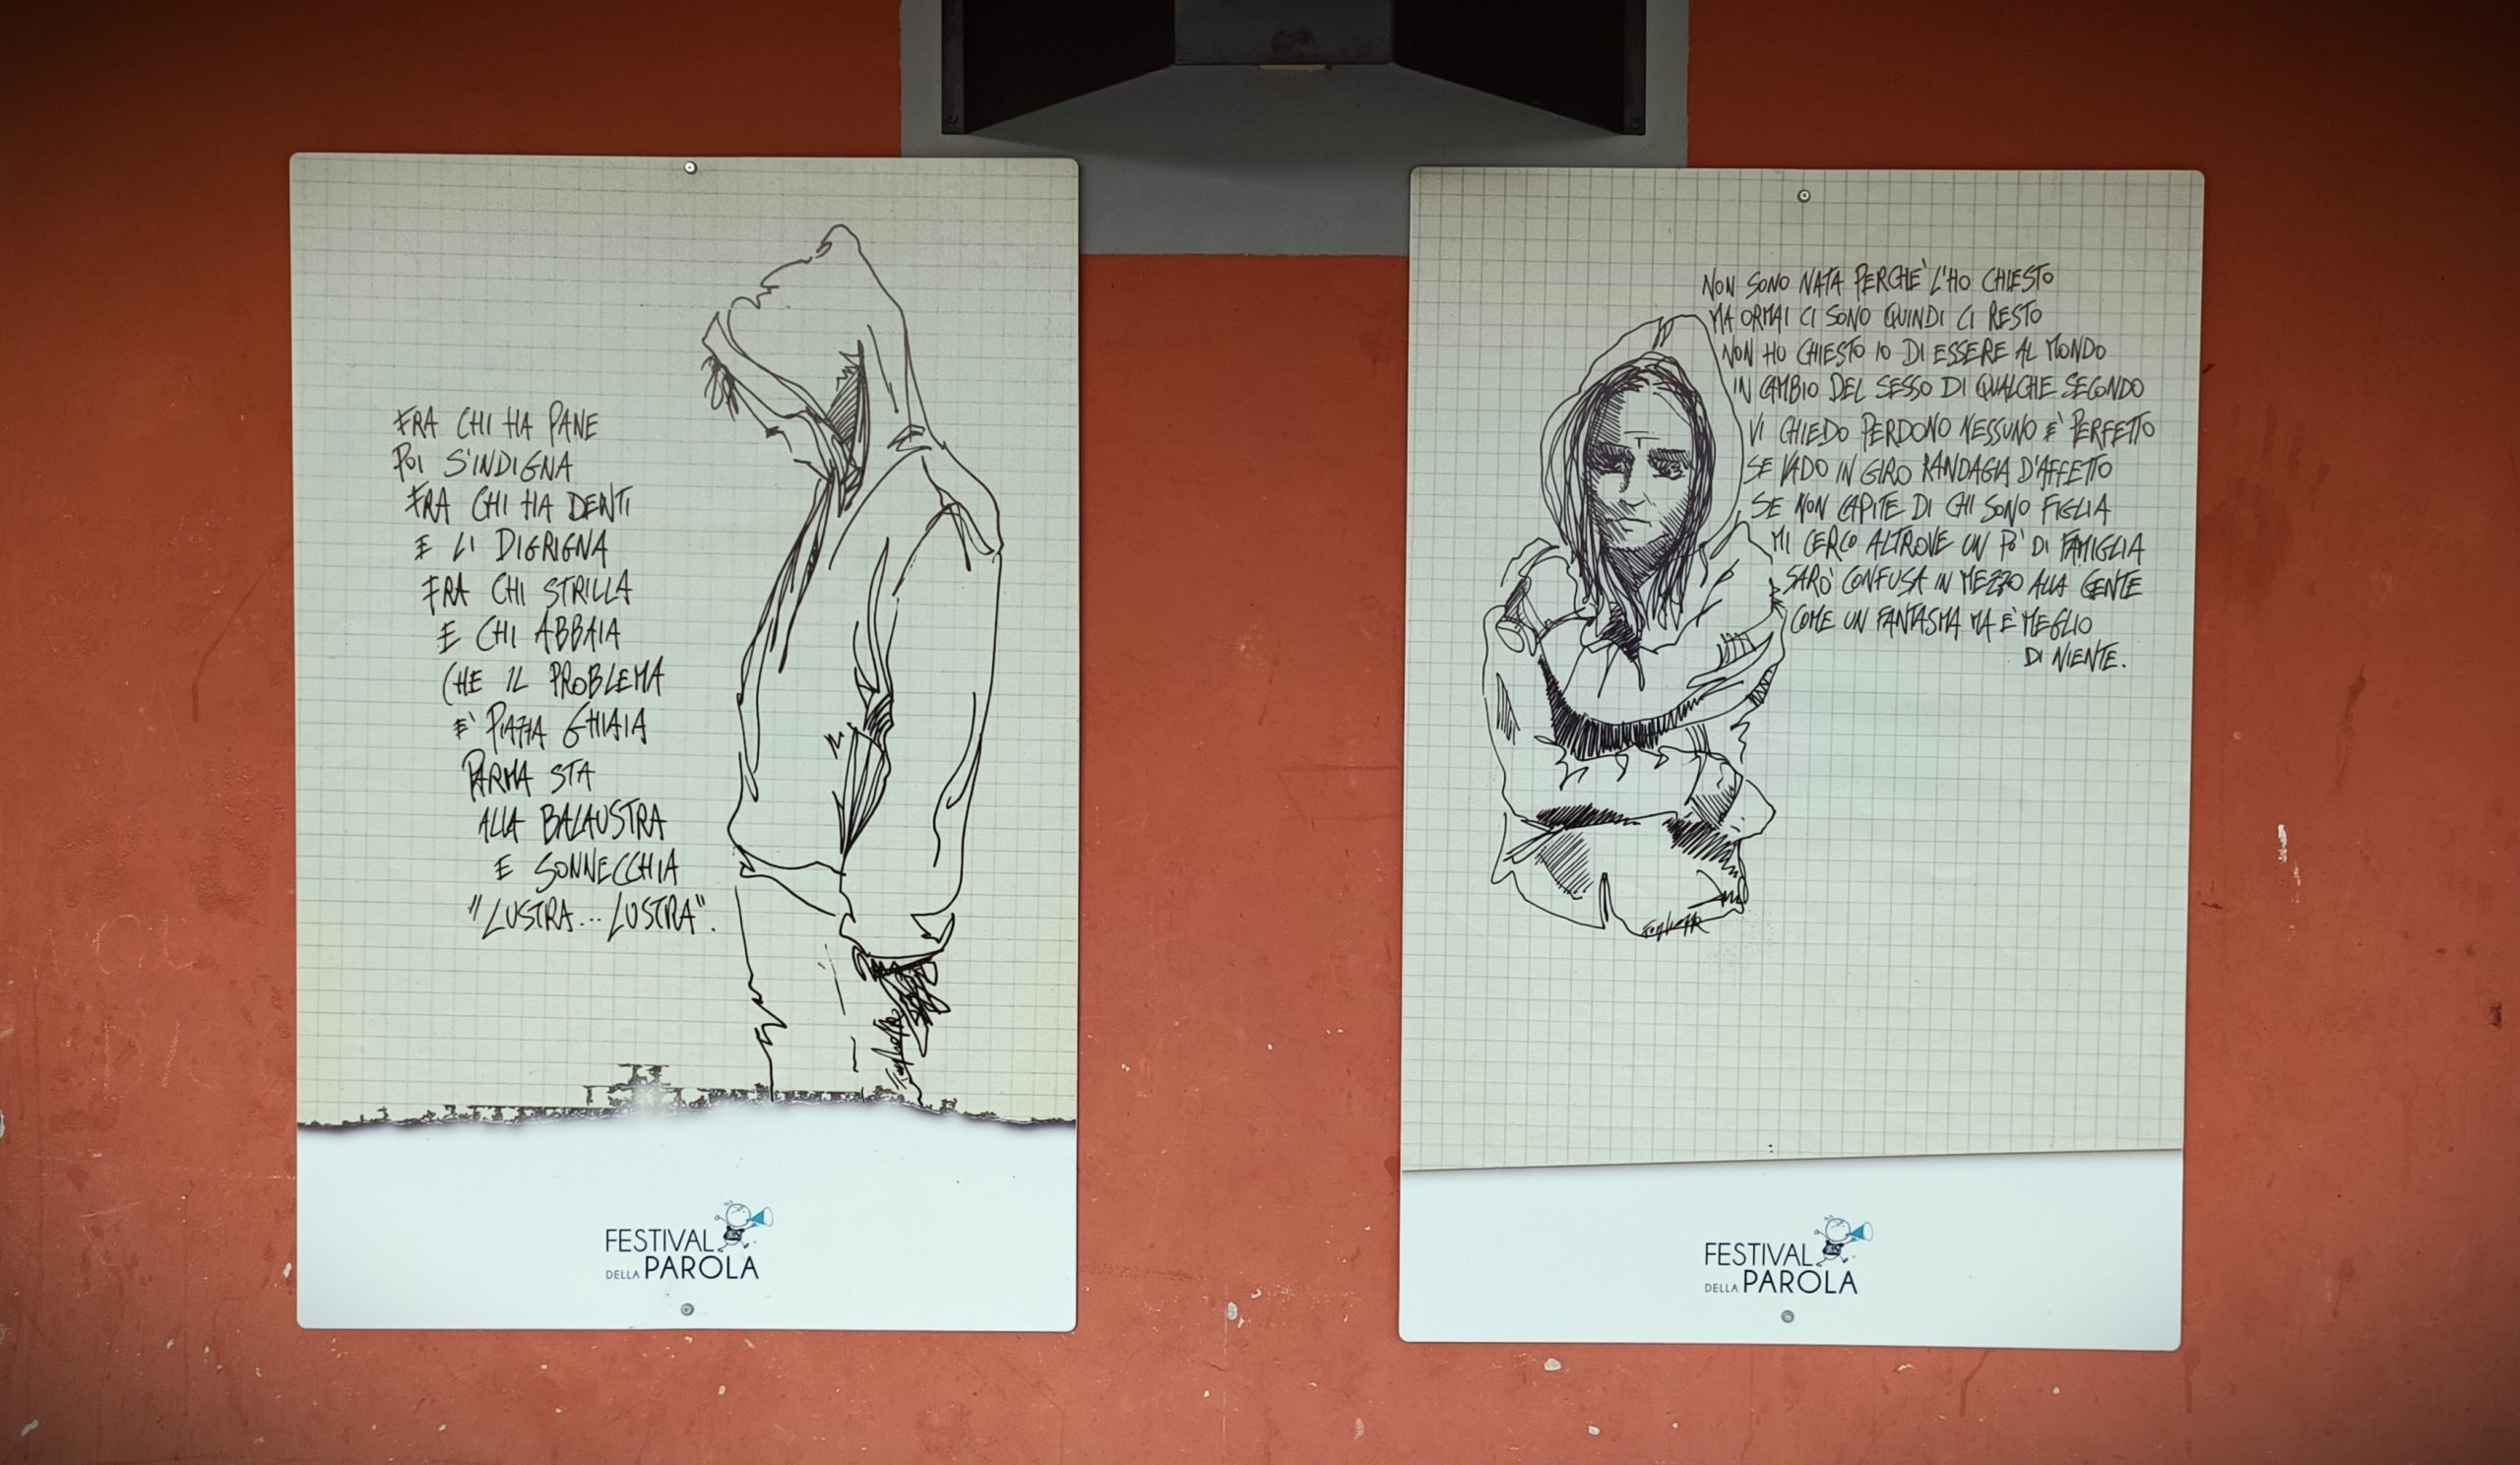 FRA CHI HA PANE
POI S'INDIGNA
FRA CHI HA DENTI
E LI DIGRIGNA
FRA CHI STRILLA
E CHI ABBAIA
CHE IL PROBLEMA
E' PIAZZA GHIAIA
PARMA STA
ALLA BALAUSTRA
E SONNECCHIA
"LUSTRA... LUSTRA".
FESTIVAL
DELLA PAROLA
NON SONO NATA PERCHE' L'HO CHIESTO
MA ORMAI CI SONO QUINDI CI RESTO
NON HO CHIESTO IO DI ESSERE AL MONDO
IN CAMBIO DEL SESSO DI QUALCHE SECONDO
VI CHIEDO PERDONO NESSUNO E' PERFETTO
SE VADO IN GIRO RANDAGIA D'AFFETTO
SE NON CAPITE DI CHI SONO FIGLIA
MI CERCO ALTROVE UN PO' DI FAMIGLIA
SARO' CONFUSA IN MEZZO ALLA GENTE
COME UN FANTASMA MA E' MEGLIO
DI NIENTE.
FESTIVAL
DELLA PAROLA